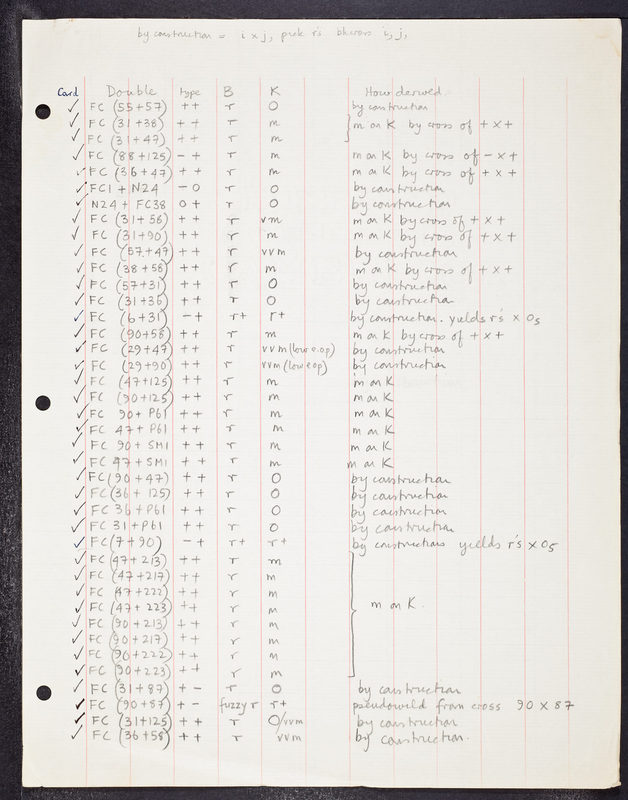 by construction = i x j, pick r's bkcross i, j,
Card Double type B K How derived
✓ FC (55+57) ++ r O by construction
✓ FC (31+38) ++ r m m on K by cross of + x +
✓ FC (31+47) ++ r m
✓ FC (88+125) - + r m m on K by cross of - x +
✓ FC (36+47) ++ r m m on K by cross of + x +
✓ FC1 + N24 - O r O by construction
✓ N24 + FC38 O + r O by construction
✓ FC (31+58) ++ r vm m on K by cross of + x +
✓ FC (31+90) ++ r m m on K by cross of + x +
✓ FC (57+47) ++ r vvm by construction
✓ FC (38+58) ++ r m m on K by cross of + x +
✓ FC (57+31) ++ r O by construction
✓ FC (31+36) ++ r O by construction
✓ FC (6+31) -+ r+ r+ by construction. yields r's x O5
✓ FC (90+58) ++ r m m on K by cross of + x +
✓ FC (29+47) ++ r vvm (low e.op) by construction
✓ FC (29+90) ++ r vvm (low e op) by construction
✓ FC (47+125) ++ r m m on K
✓ FC (90+125) ++ r m m on K
✓ FC 90+ P61 ++ r m m on K
✓ FC 47 + P61 ++ r m m on K
✓ FC 90 + SM1 ++ r m m on K
✓ FC 47 + SM1 ++ r m m on K
✓ FC (90+47) ++ r O by construction
✓ FC (36 + 125) ++ r O by construction
✓ FC 36 + P61 ++ r O by construction
✓ FC 31 + P61 ++ r O by construction
✓ FC (7+90) -+ r+ r+ by construction yields r's x O5
✓ FC (47+213) ++ r m
✓ FC (47+217) ++ r m
✓ FC (47+222) ++ r m
✓ FC (47+223) ++ r m m on K.
✓ FC (90+213) ++ r m
✓ FC (90+217) ++ r m
✓ FC (90+222) ++ r m
✓ FC (90+223) ++ r m
✓ FC (31+87) + - r O by construction
✓ FC (90+87) + - fuzzy r r+ pseudowild from cross 90 x 87
✓ FC (31+125) ++ r O/vvm by construction
✓ FC (36+58) ++ r vvm by construction.